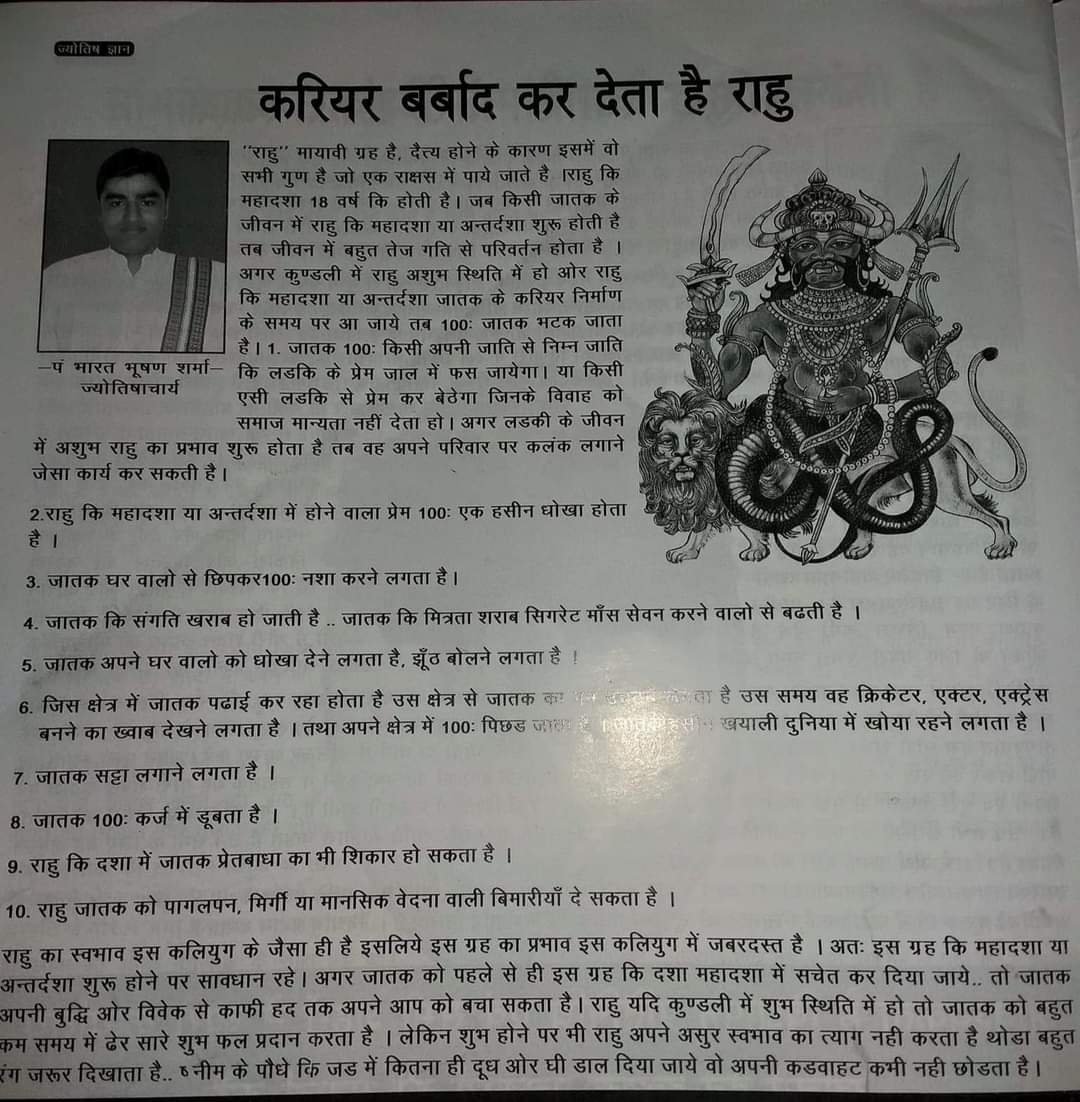 ज्योतिष ज्ञान
करियर बर्बाद कर देता है राहु
"राहु" मायावी ग्रह है, दैत्य होने के कारण इसमें वो
सभी गुण है जो एक राक्षस में पाये जाते है ।राहु कि
महादशा 18 वर्ष कि होती है। जब किसी जातक के
जीवन में राहु कि महादशा या अन्तर्दशा शुरू होती है
तब जीवन में बहुत तेज गति से परिवर्तन होता है ।
अगर कुण्डली में राहु अशुभ स्थिति में हो ओर राहु
कि महादशा या अन्तर्दशा जातक के करियर निर्माण
के समय पर आ जाये तब 100ः जातक भटक जाता
है। 1. जातक 100ः किसी अपनी जाति से निम्न जाति
कि लडकि के प्रेम जाल में फस जायेगा। या किसी
एसी लडकि से प्रेम कर बेठेगा जिनके विवाह को
समाज मान्यता नहीं देता हो। अगर लडकी के जीवन
में अशुभ राहु का प्रभाव शुरू होता है तब वह अपने परिवार पर कलंक लगाने
जेसा कार्य कर सकती है।
–पं भारत भूषण शर्मा–
ज्योतिषाचार्य
2.राहु कि महादशा या अन्तर्दशा में होने वाला प्रेम 100ः एक हसीन धोखा होता
है ।
3. जातक घर वालो से छिपकर100ः नशा करने लगता है।
4. जातक कि संगति खराब हो जाती है .. जातक कि मित्रता शराब सिगरेट माँस सेवन करने वालो से बढती है ।
5. जातक अपने घर वालो को धोखा देने लगता है, झूँठ बोलने लगता है !
6. जिस क्षेत्र में जातक पढाई कर रहा होता है उस क्षेत्र से जातक का है उस समय वह क्रिकेटर, एक्टर, एक्ट्रेस
बनने का ख्वाब देखने लगता है । तथा अपने क्षेत्र में 100ः पिछड जाता है । खयाली दुनिया में खोया रहने लगता है ।
7. जातक सट्टा लगाने लगता है ।
8. जातक 100ः कर्ज में डूबता है ।
9. राहु कि दशा में जातक प्रेतबाधा का भी शिकार हो सकता है ।
10. राहु जातक को पागलपन, मिर्गी या मानसिक वेदना वाली बिमारीयाँ दे सकता है ।
राहु का स्वभाव इस कलियुग के जैसा ही है इसलिये इस ग्रह का प्रभाव इस कलियुग में जबरदस्त है । अतः इस ग्रह कि महादशा या
अन्तर्दशा शुरू होने पर सावधान रहे। अगर जातक को पहले से ही इस ग्रह कि दशा महादशा में सचेत कर दिया जाये.. तो जातक
अपनी बुद्धि ओर विवेक से काफी हद तक अपने आप को बचा सकता है। राहु यदि कुण्डली में शुभ स्थिति में हो तो जातक को बहुत
कम समय में ढेर सारे शुभ फल प्रदान करता है । लेकिन शुभ होने पर भी राहु अपने असुर स्वभाव का त्याग नही करता है थोडा बहुत
रंग जरूर दिखाता है.. नीम के पौधे कि जड में कितना ही दूध ओर घी डाल दिया जाये वो अपनी कडवाहट कभी नही छोडता है।